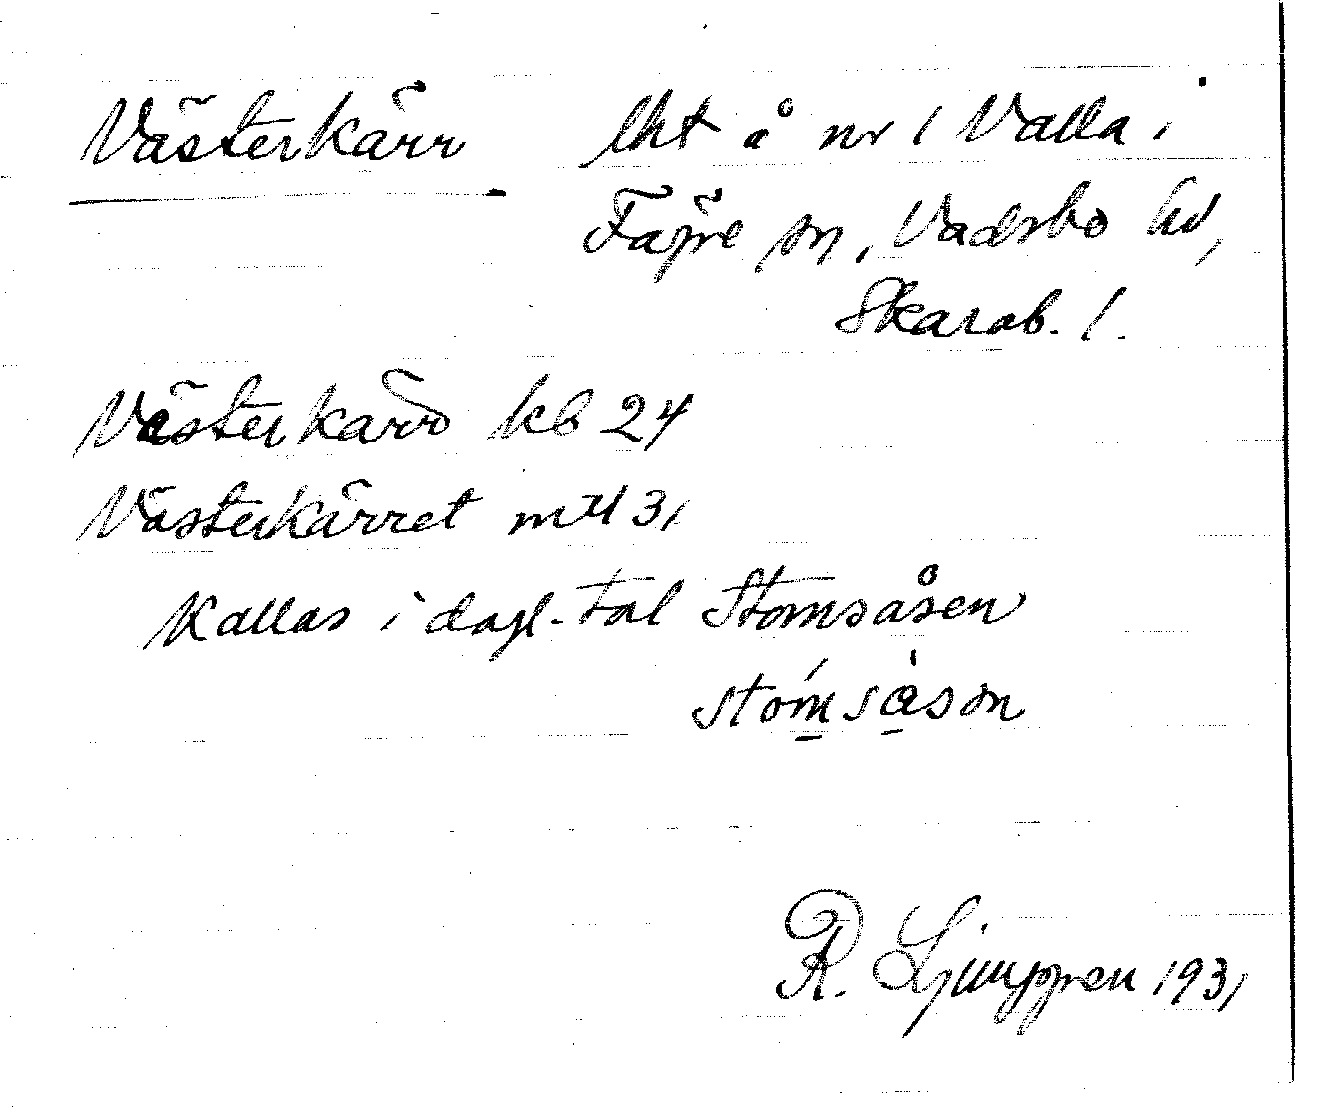 Västerkärr lht å nr 1 Valla i
Fägre sn, Vadsbo hd,
Skarab. l.
Västerkärr kb 24
Västerkärret mtl 31
Kallas i dagl. tal Stomsåsen
R. Ljunggren 1931